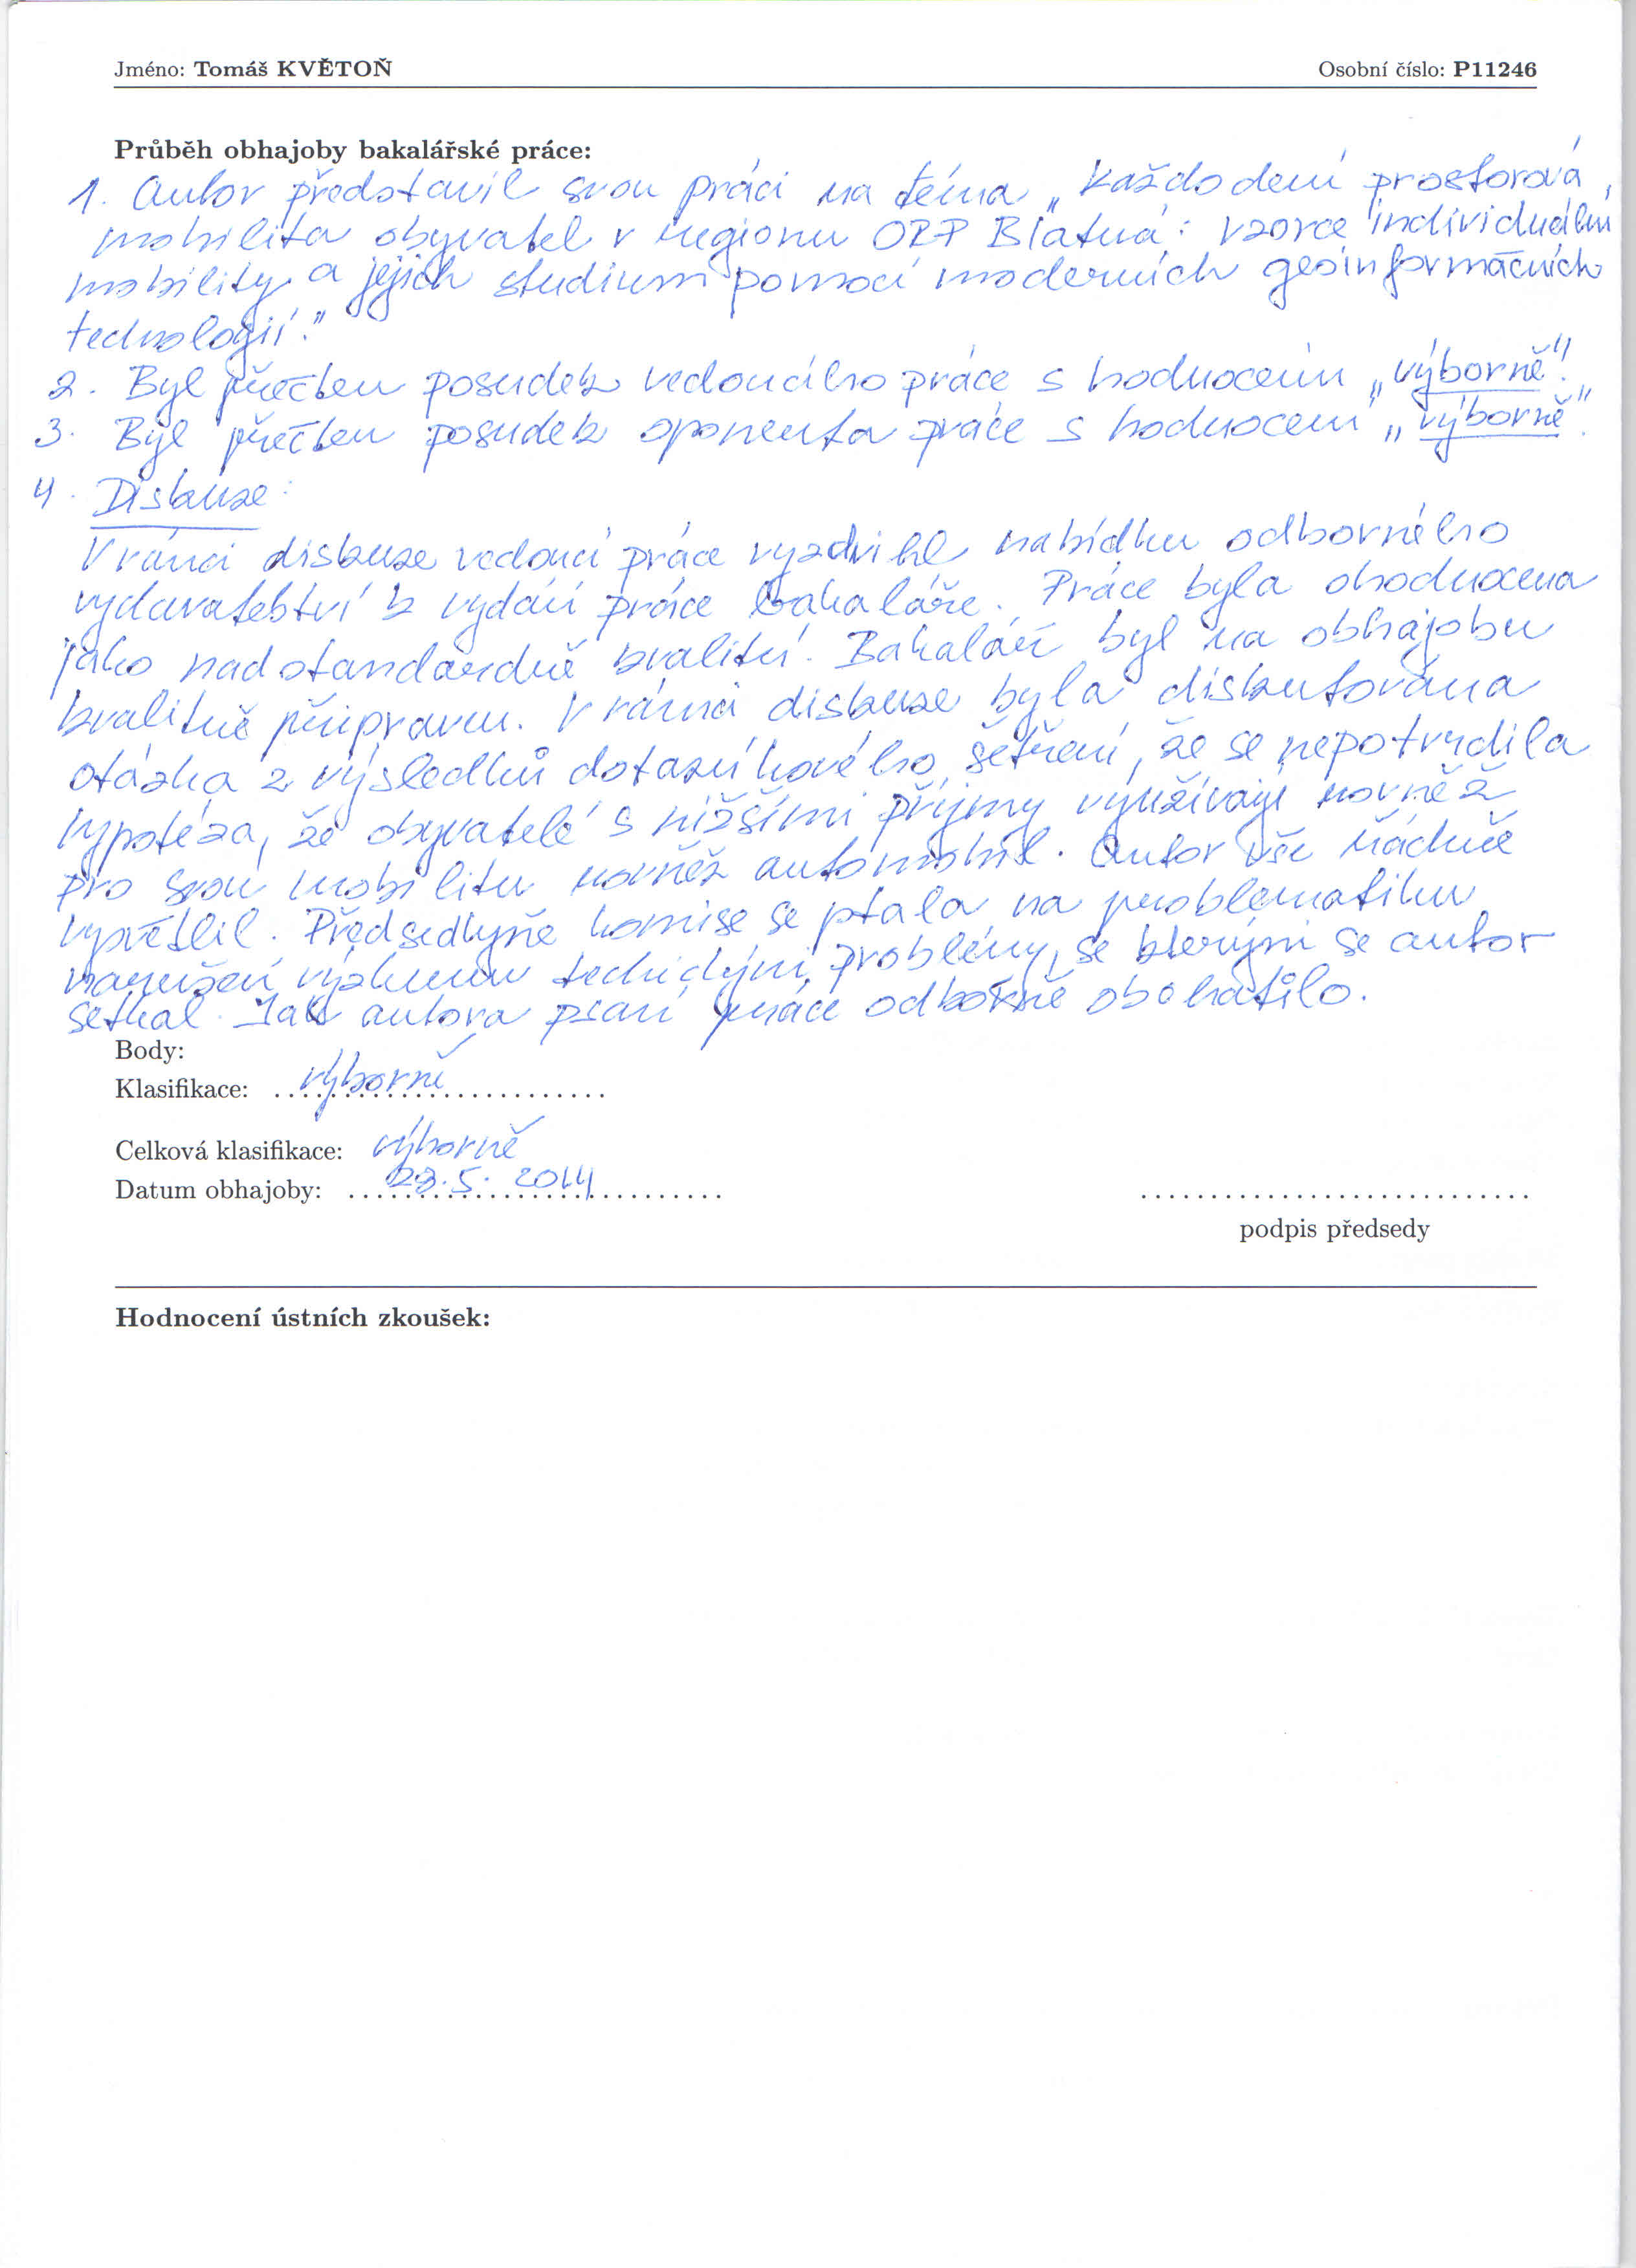 Jméno: Tomáš KVĚTOŇ Osobní číslo: P11246
Průběh obhajoby bakalářské práce:
1. Autor představil svou práci na téma „Každodení prostorová
mobilita obyvatel v regionu ORP Blatná: vzorce individuální
mobility a jejich studium pomocí moderních geoinformačních
technologií."
2. Byl přečten posudek vedoucího práce s hodnocením „výborně".
3. Byl přečten posudek oponenta práce s hodnocením „výborně".
4. Diskuze:
V rámci diskuze vedoucí práce vyzdvihl nabídku odborného
vydavatelství k vydání práce bakaláře. Práce byla ohodnocena
jako nadstandardně kvalitní. Bakalář byl na obhajobu
kvalitně připraven. V rámci diskuze byla diskutována
otázka z výsledků dotazníkového šetření, že se nepotvrdila
hypotéza, že obyvatelé s nižšími příjmy využívají rovněž
pro svou mobilitu rovněž automobil. Autor vše řádně
vysvětlil. Předsedkyně komise se ptala na problematiku
výzkumu problémy, se kterými se autor
setkal. Jak autora psaní práce odborně obohatilo.
Body:
Klasifikace: výborně
Celková klasifikace: výborně
Datum obhajoby: 28.5. 2014
podpis předsedy
Hodnocení ústních zkoušek: